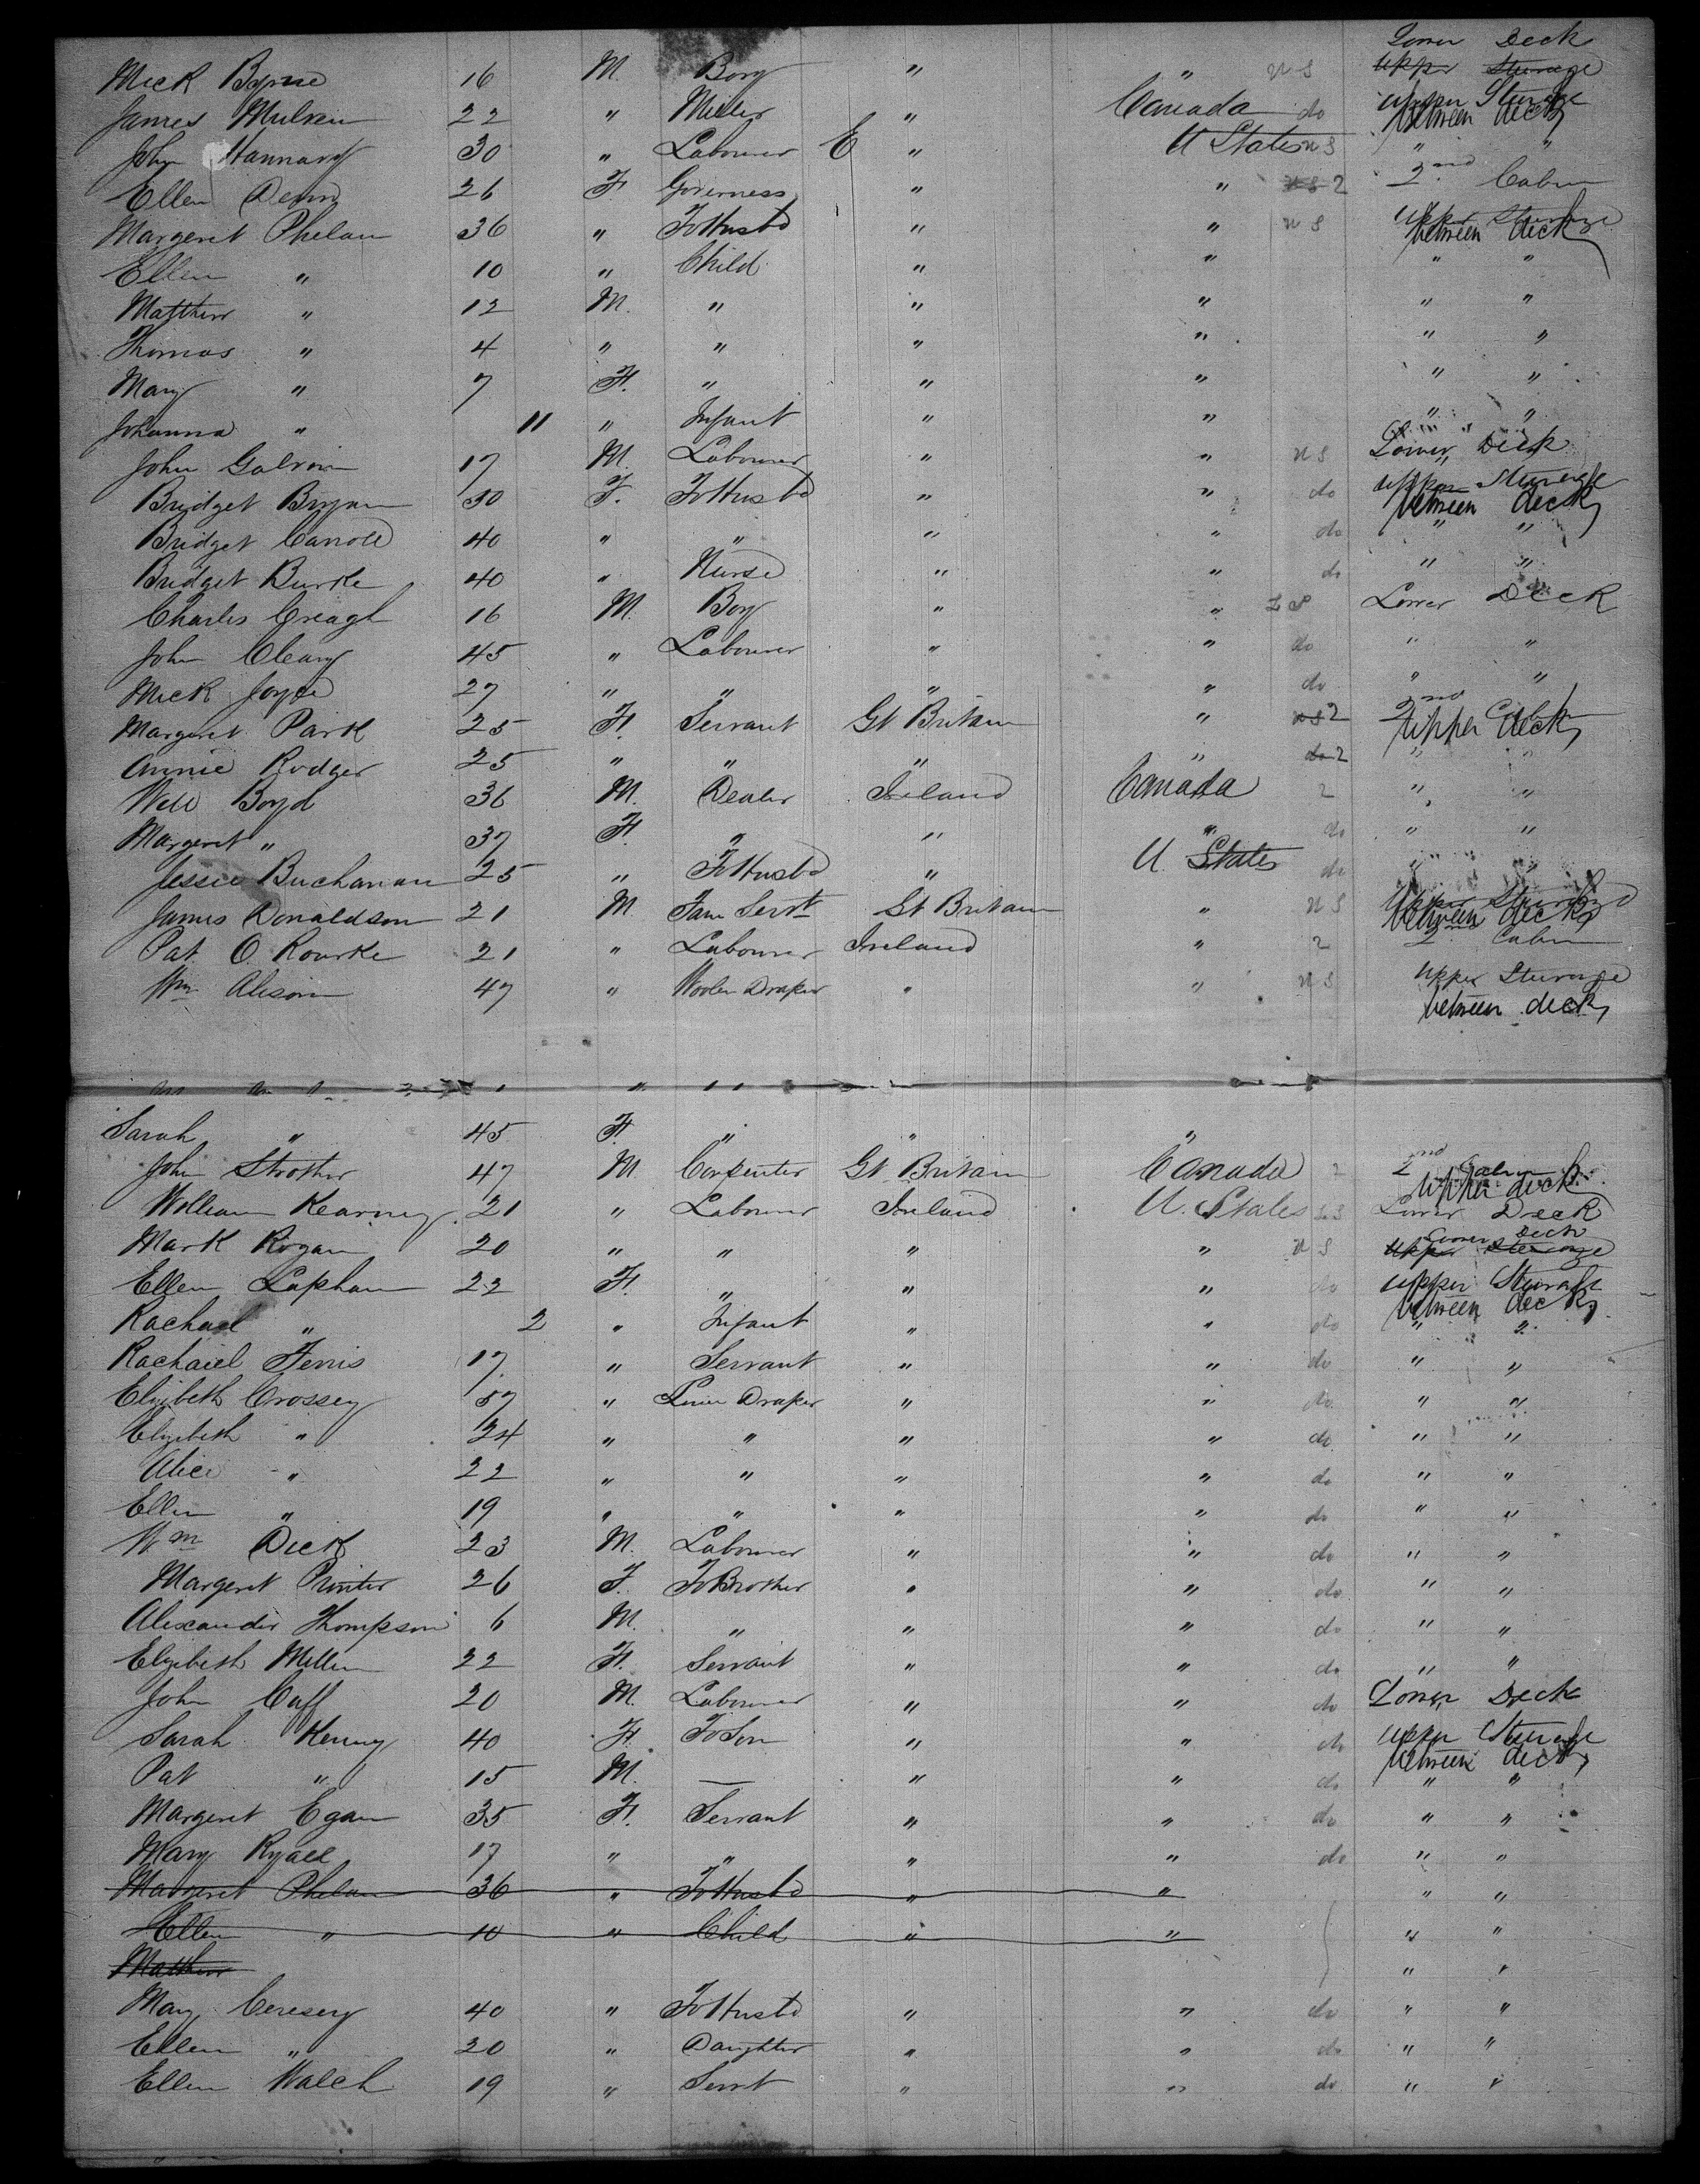 Lower Deck
Mick Byrne 16 M. Boy " " U S Upper Sturage
James Mulren 22 " Miller " Canada do upper Sturage
between decks
John Hannard 30 " Labourer E " U States U S " "
Ellen Denn 26 F. Governess " " U S 2 2nd Cabin
Margeret Phelan 36 " To Husbd " " U S Upper Sturage
between decks
Ellen " 10 " Child " " " "
Matthew " 12 M. " " " " "
Thomas " 4 " " " " " "
Mary " 7 F. " " " " "
Johanna " 11 " Infant " " " "
John Galvin 17 M. Labourer " " U S Lower Deck
Bridget Bryan 30 F. To Husbd " " do upper Sturage
between decks
Bridget Carroll 40 " " " " do " "
Bridget Burke 40 " Nurse " " do " "
Charles Creagh 16 M. Boy " " L S Lower Deck
John Cleary 45 " Labourer " " do " "
Mick Joyce 27 " " " " do " "
Margeret Park 25 F. Servant Gt Britain " U S 2 2nd Cabin
Upper deck
Annie Rodger 25 " " " " do 2 " "
Will Boyd 36 M. Dealer Ireland Canada 2 " "
Margeret " 37 F. " " " do " "
Jessie Buchanan 25 " To Husbd " U. States do " "
James Donaldson 21 M. Farm Servt Gt Britain " U S Upper Sturage
between decks
Pat O Rourke 21 " Labourer Ireland " 2 2nd Cabin
Wm Alison 47 " Woolen Draper " " U S Upper Sturage
between decks
Sarah " 45 F. " " "
John Strother 47 M. Carpenter Gt Britain Canada 2 2nd Cabin
Upper deck
William Kearney 21 " Labourer Ireland U. States L S Lower Deck
Lower Deck
Mark Rogan 20 " " " " U S Upper Sterage
Ellen Lapham 22 F. " " " do upper Sturage
between decks
Rachael " 2 " Infant " " do " "
Rachaiel Ferris 17 " Servant " " do " "
Elizibeth Crossey 57 " Linen Draper " " do " "
Elizibeth " 24 " " " " do " "
Alice " 22 " " " " do " "
Ellen " 19 " " " " do " "
Wm Dick 23 M. Labourer " " do " "
Margeret Printer 26 F. To Brother " " do " "
Alexander Thompson 6 M. " " " do " "
Elizibeth Millen 22 F. Servant " " do " "
John Caff 20 M. Labourer " " do Lower Deck
Sarah Kenny 40 F. To Son " " do upper Sturage
between decks
Pat " 15 M. — " " do " "
Margeret Egan 35 F. Servant " " do " "
Mary Ryall 17 " " " " do " "
Margeret Phelan 36 " To Husbd " " " "
Ellen " 10 " Child " " " "
Matthew " "
Mary Ceresey 40 " To Husbd " " do " "
Ellen " 20 " Daughter " " do " "
Ellen Walch 19 " Servt " " do " "